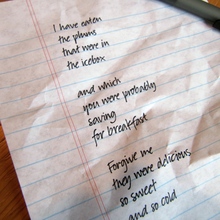 I have eaten
the plums
that were in
the icebox
and which
you were probably
saving
for breakfast
Forgive me
they were delicious
so sweet
and so cold